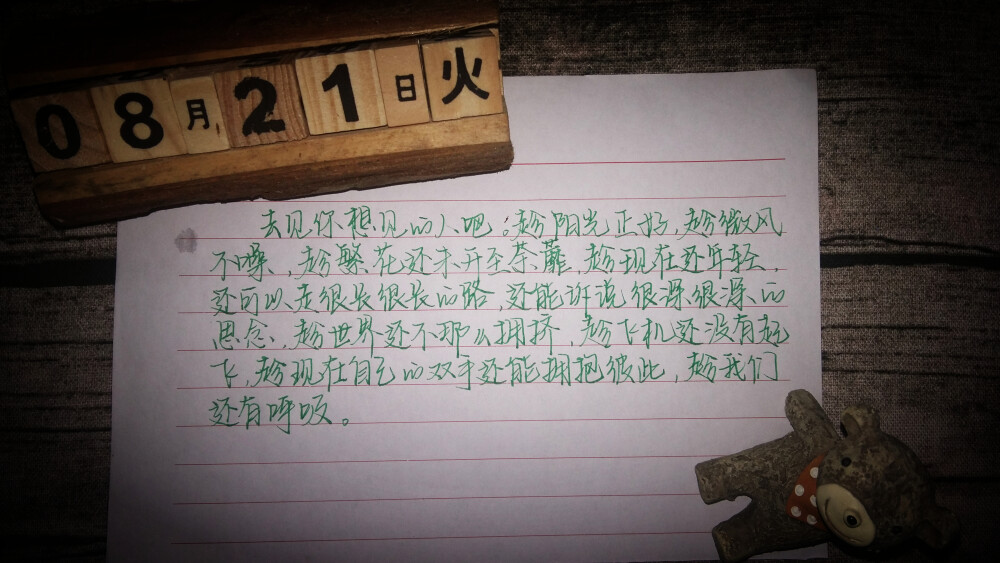 08月21日火
去见你想见的人吧；趁阳光正好，趁微风
不噪，趁繁花还未开至荼蘼，趁现在还年轻，
还可以走很长很长的路，还能诉说很深很深的
思念，趁世界还不那么拥挤，趁飞机还没有起
飞，趁现在自己的双手还能拥抱彼此，趁我们
还有呼吸。